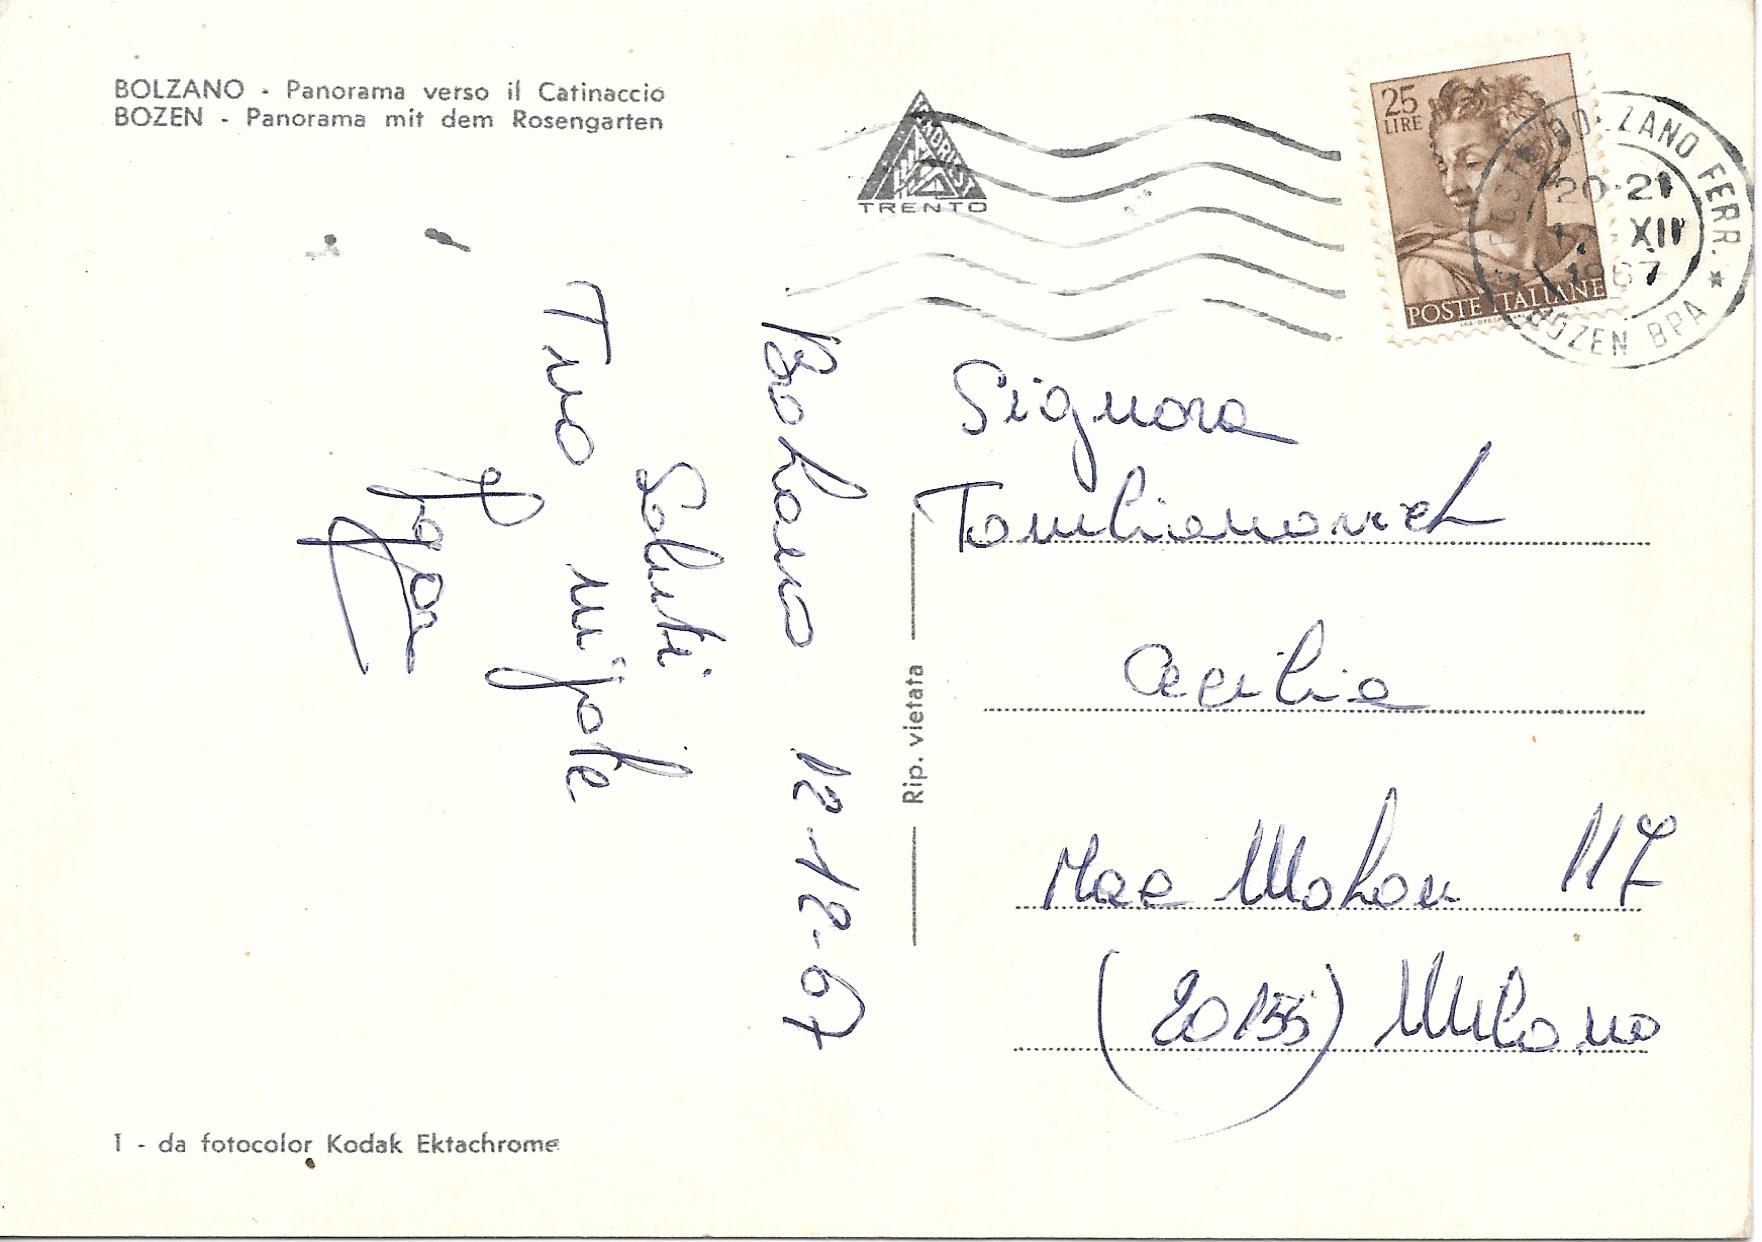 BOLZANO - Panorama verso il Catinaccio
BOZEN - Panorama mit dem Rosengarten
TRENTO
25
LIRE
POSTE ITALIANE
BOLZANO FERR.
20-21
XII
1967
BOZEN BPA
12-12-67
Saluti
Tuo nipote
Rip. vietata
Signora
Cecilia
117
(20155) Milano
1 - da fotocolor Kodak Ektachrome